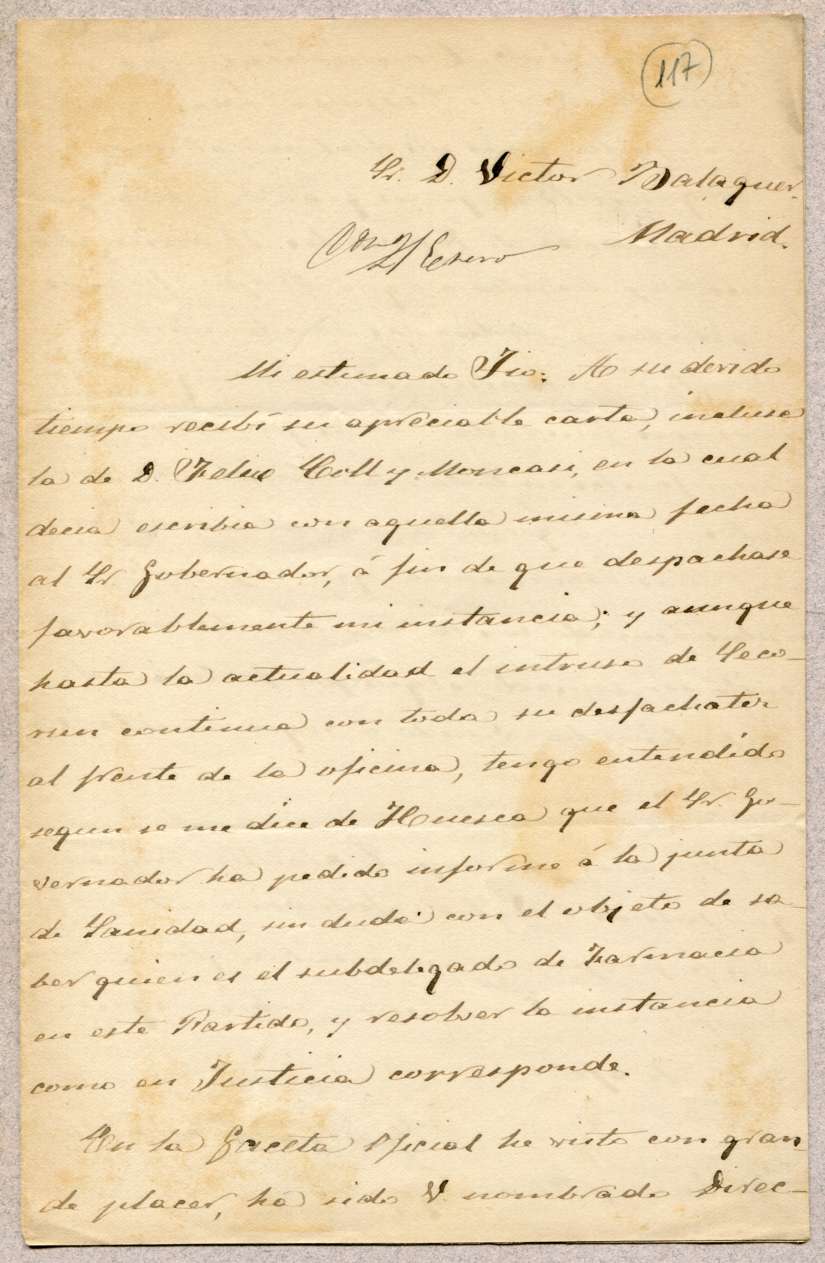 117
Sr. D. Victor Balaguer.
Madrid.
21 Enero
Mi estimado Tio: A su devido
tiempo recibí su apreciable carta, inclusa
la de D. Felix Coll y Moncasi, en la cual
decia escribia con aquella misma fecha
al Sr Gobernador, á fin de que despachase
favorablemente mi instancia; y aunque
hasta la actualidad el intruso de Seco-
run continua con toda su desfachatez
al frente de la oficina, tengo entendido
segun se me dice de Huesca que el Sr. Go-
vernador ha pedido informe á la junta
de Sanidad, sin duda con el objeto de sa-
ber quien es el subdelegado de Farmacia
en este Partido, y resolver la instancia
como en Justicia corresponde.
En la Gaceta Oficial he visto con gran
de placer, ha sido V. nombrado Direc-